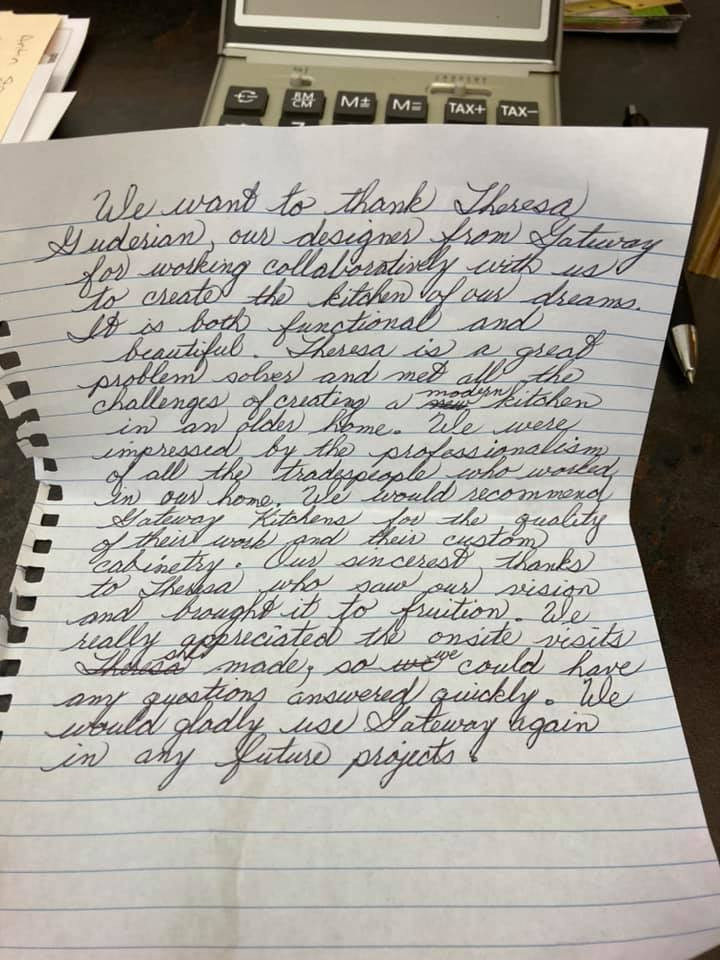 RM
CM
M±
M=
TAX+
TAX-
We want to thank Theresa
Guderian, our designer from Gateway
for working collaboratively with us
to create the kitchen of our dreams.
It is both functional and
beautiful. Theresa is a great
problem solver and met all the
challenges of creating a modern kitchen
in an older home. We were
impressed by the professionalism
of all the tradespeople who worked
in our home. We would recommend
Gateway Kitchens for the quality
of their work and their custom
cabinetry. Our sincerest thanks
to Theresa who saw our vision
and brought it to fruition. We
really appreciated the onsite visits
she made, so we could have
any questions answered quickly. We
would gladly use Gateway again
in any future projects.